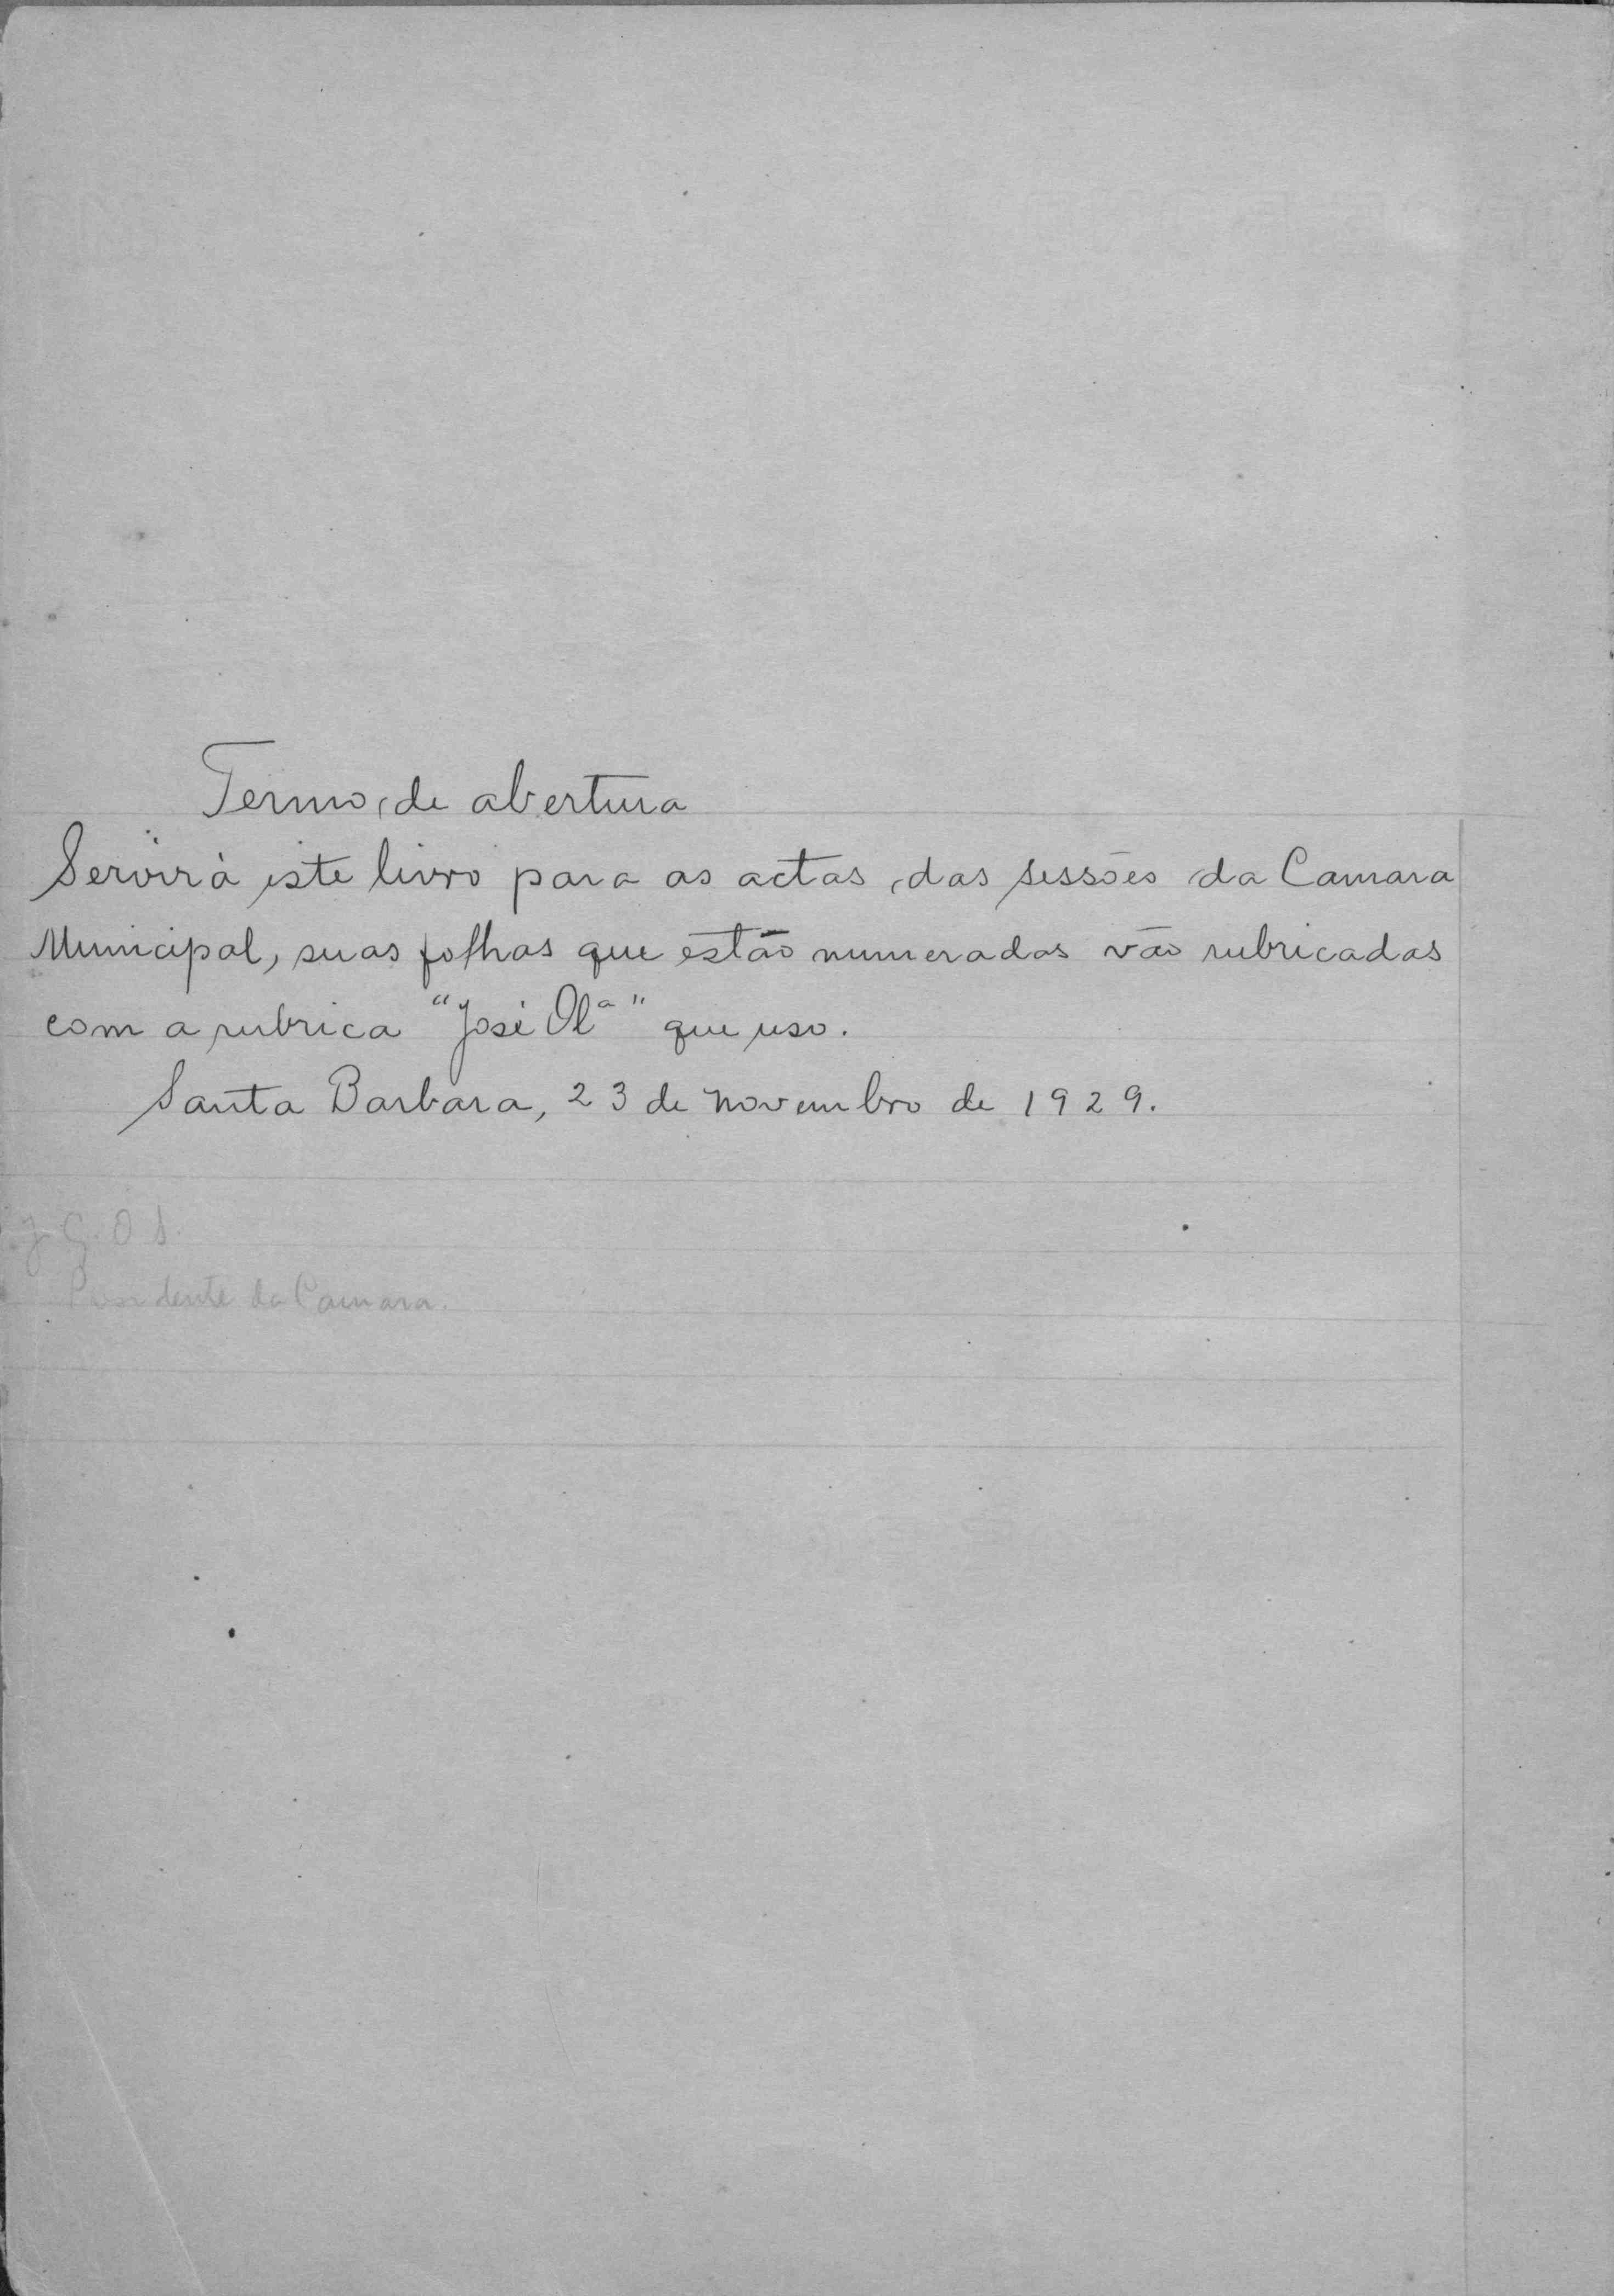 Termo de abertura
Servirá este livro para as actas das sessões da Camara
Municipal, suas folhas que estão numeradas vão rubricadas
com a rubrica "José Olª" que uso.
Santa Barbara, 23 de novembro de 1929.
J G. O S.
Presidente da Camara.